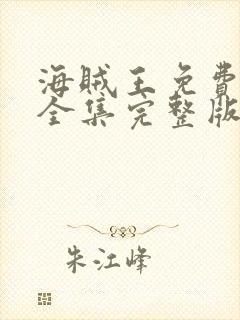 海贼王免費
全集完整版
朱江峰